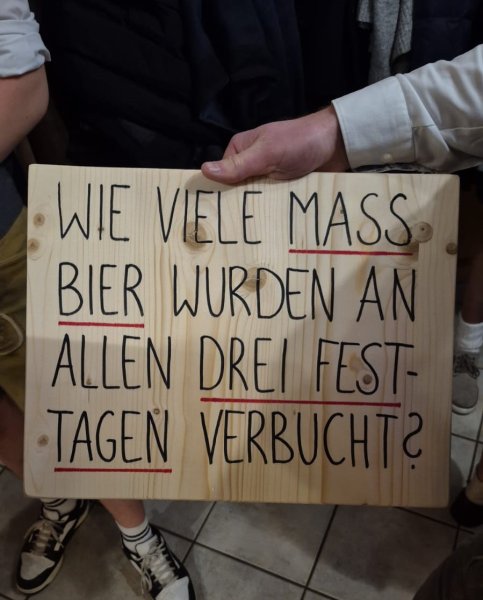 WIE VIELE MASS
BIER WURDEN AN
ALLEN DREI FEST-
TAGEN VERBUCHT?